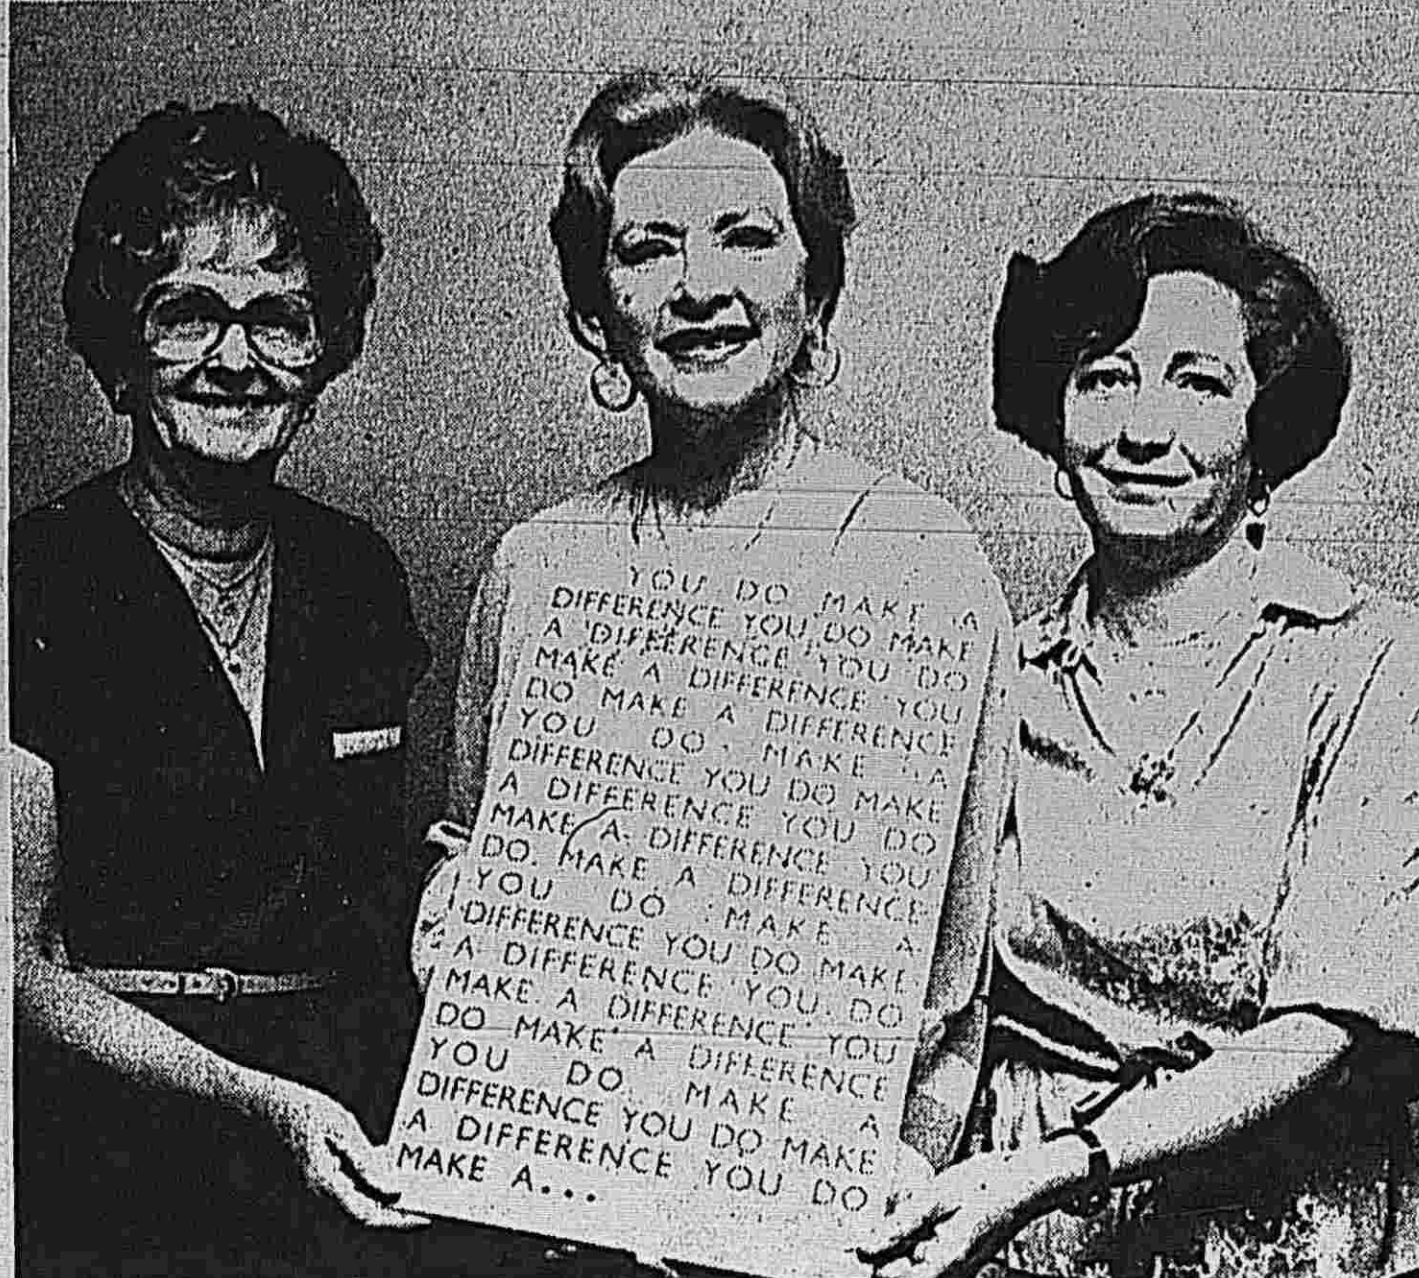 YOU DO MAKE A
DIFFERENCE YOU DO MAKE
A DIFFERENCE YOU DO
MAKE A DIFFERENCE YOU
DO MAKE A DIFFERENCE
YOU DO MAKE A
DIFFERENCE YOU DO MAKE
A DIFFERENCE YOU DO
MAKE A DIFFERENCE YOU
DO MAKE A DIFFERENCE
YOU DO MAKE A
DIFFERENCE YOU DO MAKE
A DIFFERENCE YOU DO
MAKE A DIFFERENCE YOU
DO MAKE A DIFFERENCE
YOU DO MAKE A
DIFFERENCE YOU DO MAKE
A DIFFERENCE YOU DO
MAKE A...